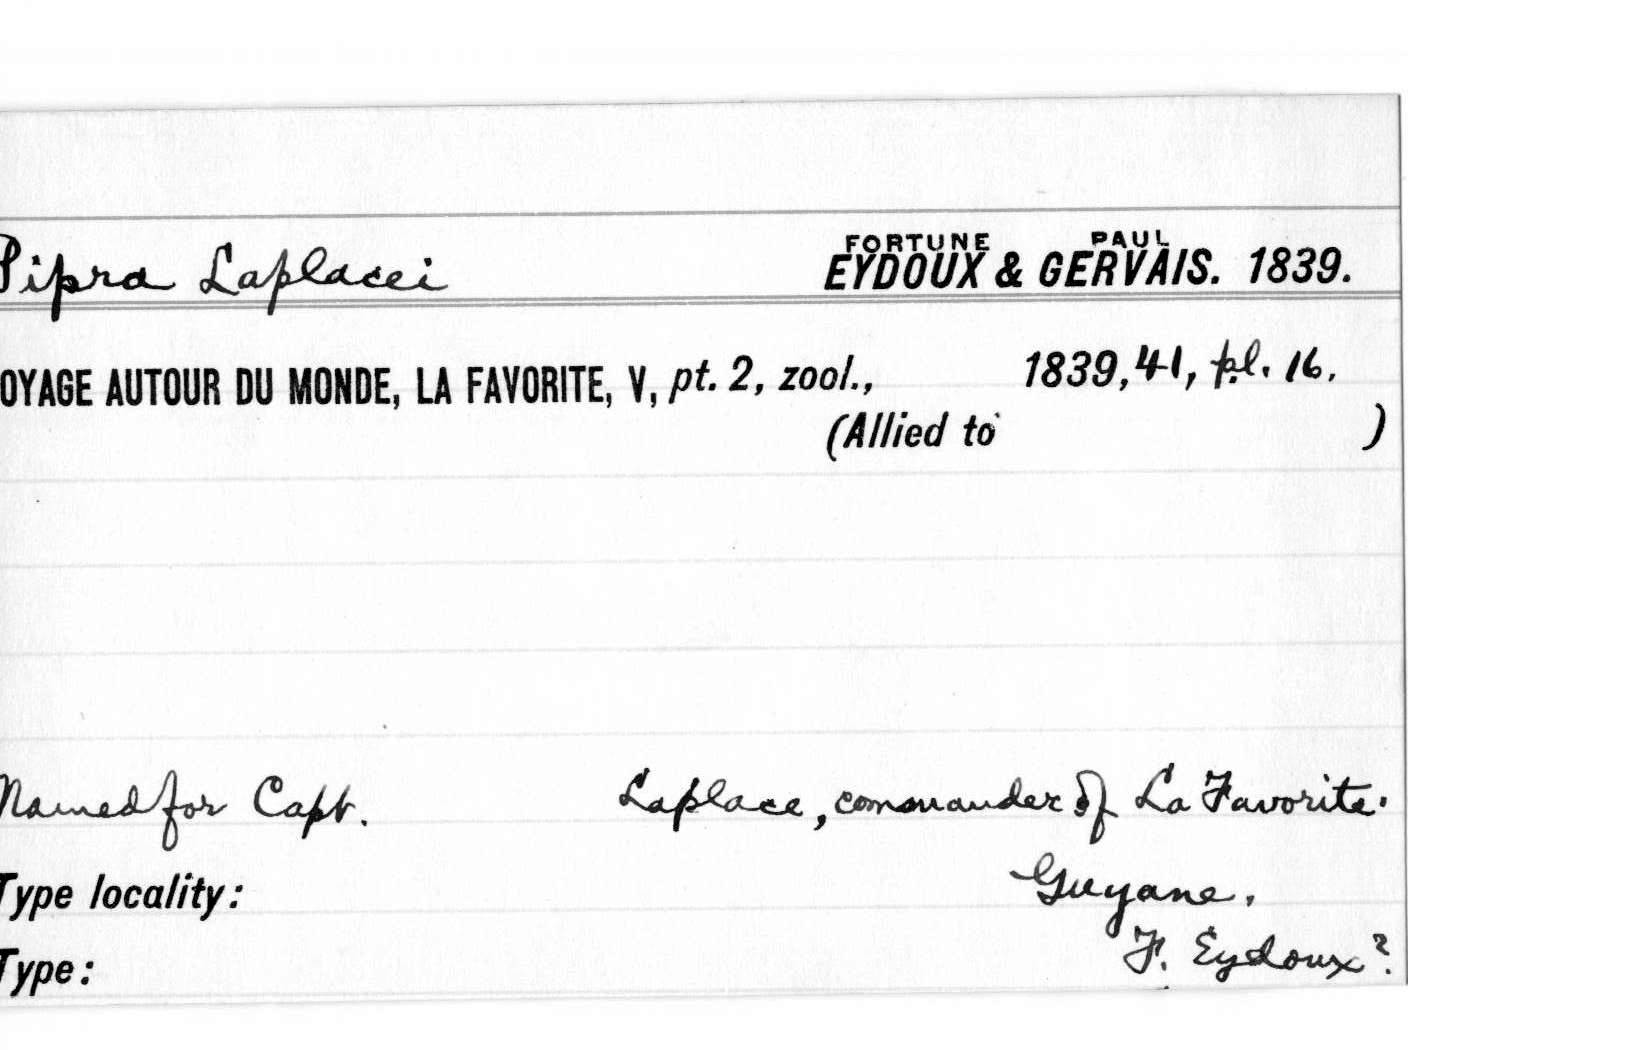 Pipra Laplacei
FORTUNE PAUL
EYDOUX & GERVAIS. 1839.
OYAGE AUTOUR DU MONDE, LA FAVORITE, V, pt. 2, zool., 1839, 41, pl. 16.
(Allied to )
Named for Capt. Laplace, commander of La Favorite.
Type locality: Guyane.
Type: F. Eydoux?